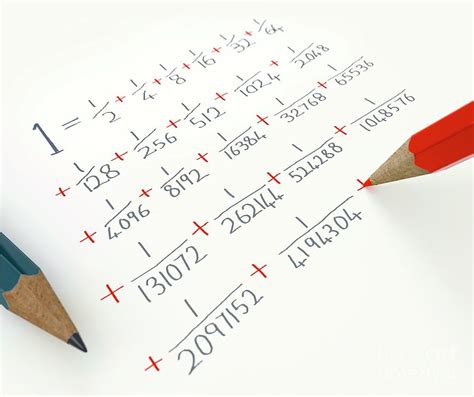 1 = 1/2 + 1/4 + 1/8 + 1/16 + 1/32 + 1/64
+ 1/128 + 1/256 + 1/512 + 1/1024 + 1/2048
+ 1/4096 + 1/8192 + 1/16384 + 1/32768 + 1/65536
+ 1/131072 + 1/262144 + 1/524288 + 1/1048576
+ 1/2097152 + 1/4194304 +